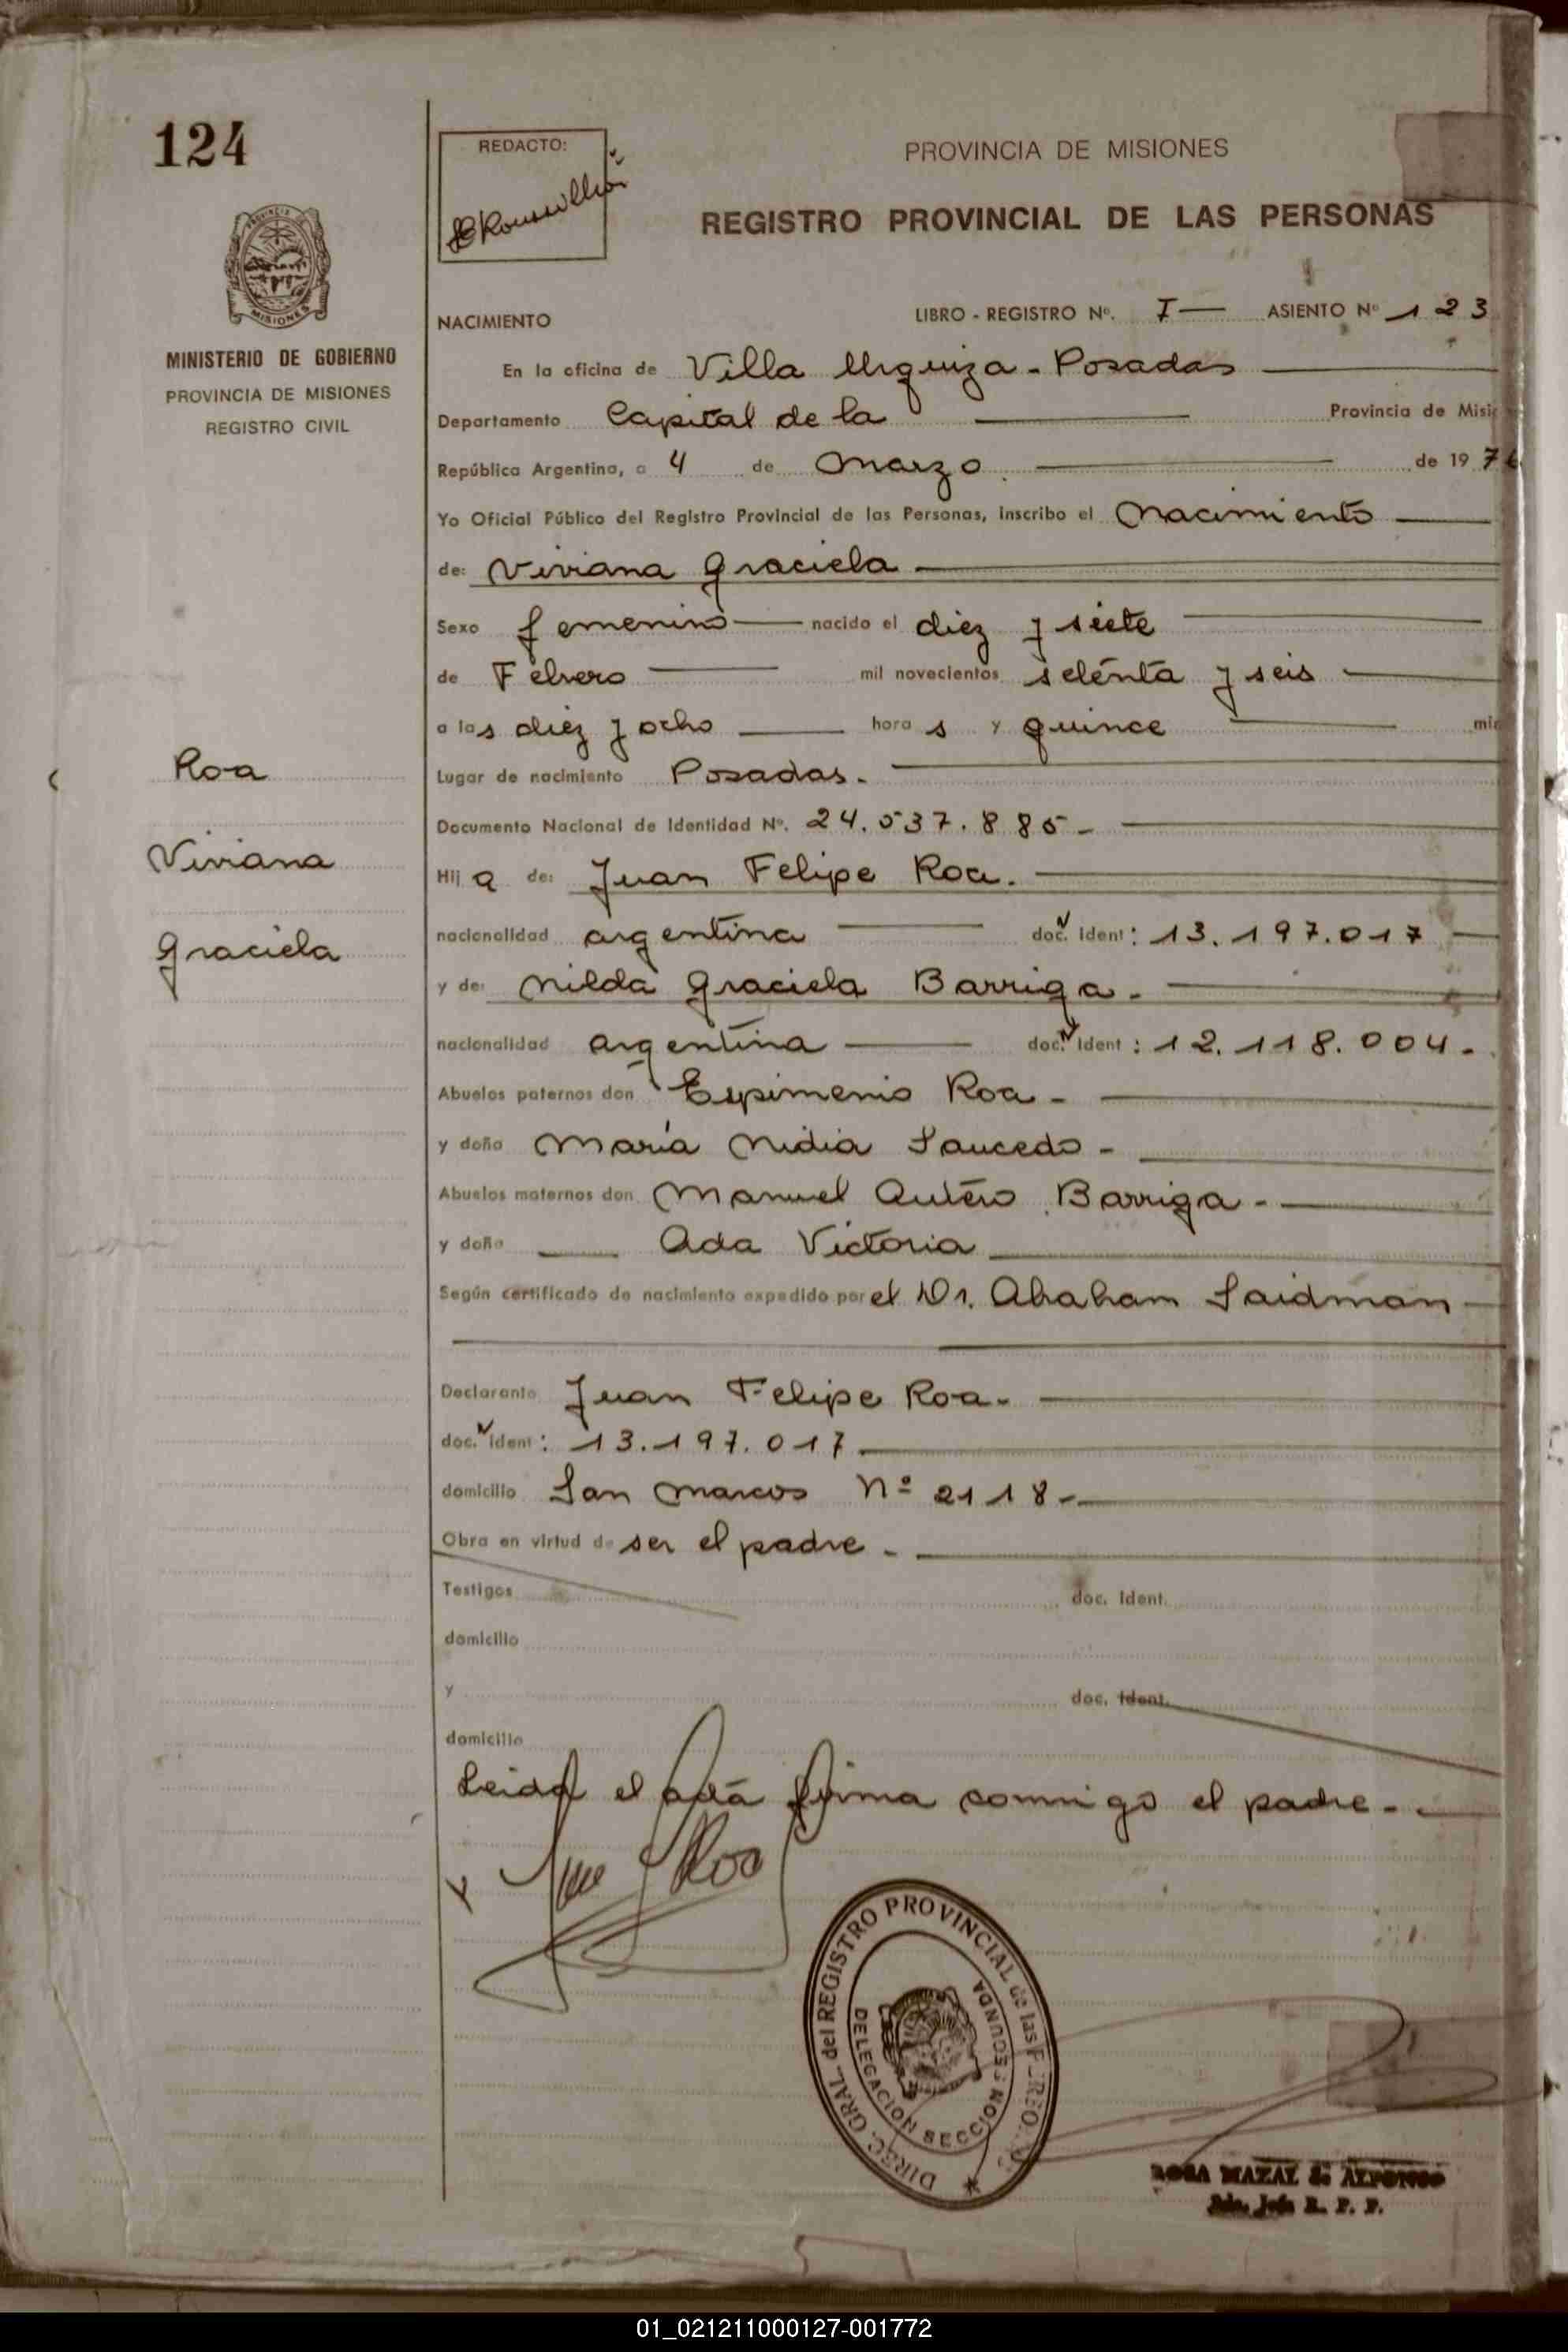 124
REDACTO:
PROVINCIA DE MISIONES
REGISTRO PROVINCIAL DE LAS PERSONAS
MISIONES
MINISTERIO DE GOBIERNO
PROVINCIA DE MISIONES
REGISTRO CIVIL
NACIMIENTO LIBRO - REGISTRO Nº. I — ASIENTO Nº 123
En la oficina de Villa Urquiza - Posadas
Departamento Capital de la Provincia de Misi
República Argentina, a 4 de Marzo de 1976
Yo Oficial Público del Registro Provincial de las Personas, inscribo el Nacimiento
de: Viviana Graciela
Sexo femenino nacido el diez y siete
de Febrero mil novecientos setenta y seis
a las diez y ocho horas y quince min
Lugar de nacimiento Posadas.
Documento Nacional de Identidad Nº. 24.537.885-
Hija de: Juan Felipe Roa.
nacionalidad argentina doc. Ident: 13.197.017
y de: Nilda Graciela Barriga.
nacionalidad argentina doc. Ident: 12.118.004.
Abuelos paternos don Espimenio Roa-
y doña María Nidia Saucedo-
Abuelos maternos don Manuel Antero Barriga-
y doña Ada Victoria
Según certificado de nacimiento expedido por el Dr. Abraham Saidman
Declarante Juan Felipe Roa.
doc. Ident: 13.197.017
domicilio San Marcos Nº 2118-
Obra en virtud de ser el padre.
Testigos doc. Ident.
domicilio
y doc. Ident.
domicilio
Leida el acta firma conmigo el padre.
Roa
Viviana
Graciela
DIREC. GRAL. del REGISTRO PROVINCIAL de las PERSONAS
DELEGACION SECCION SEGUNDA
ROSA MAZAL de ALFONSO
R. P. P.
01_021211000127-001772